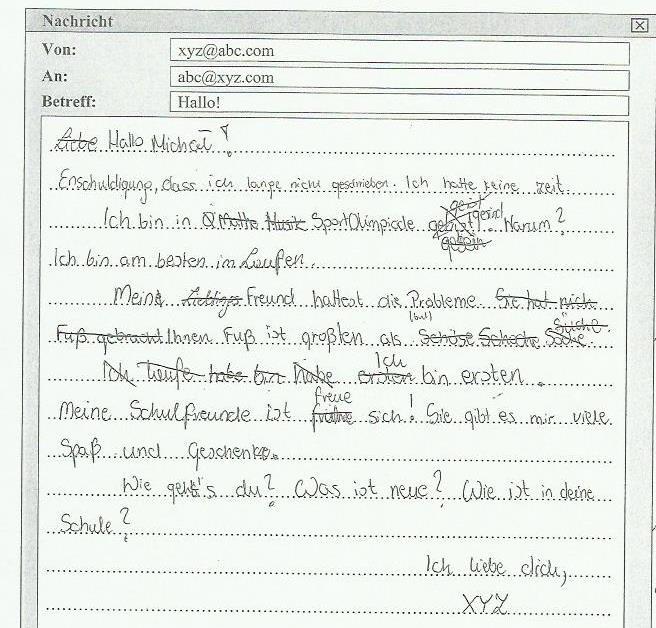 Nachricht
Von: xyz@abc.com
An: abc@xyz.com
Betreff: Hallo!
Liebe Hallo Michael!
Enschuldigung, dass ich lange nicht geschrieben. Ich hatte keine zeit.
Ich bin in Mathe Musik SportOlimpiade gereist. Warum?
Ich bin am besten im Laufen.
Meine Freund hattest die Probleme. Sie hat nich
Fuß gebracht Ihnen Fuß ist großten als Schuhe
Ich laufe habe bin habe ersten Ich bin ersten.
Meine Schulfreunde ist freue sich! Sie gibt es mir viele
Spaß und Geschenke.
Wie geht's du? Was ist neue? Wie ist in deine
Schule?
Ich liebe dich,
XYZ